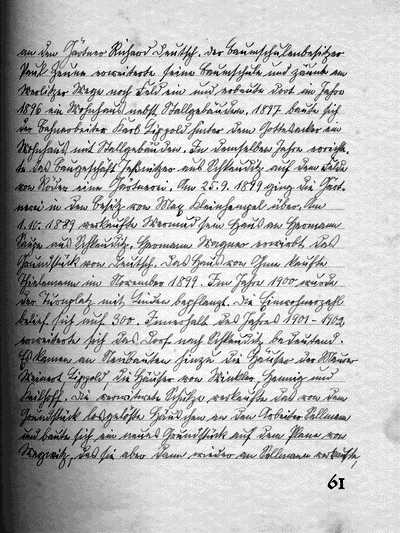 an den Gärtner Richard Deutsch. Der Baumschulenbesitzer
Paul Heune erweiterte seine Baumschule und zäunte am
Wege noch Feld ein und erbaute dort im Jahre
1896 ein Wohnhaus nebst Stallgebäuden. 1897 baute sich
der Bahnarbeiter Karl Lippold hinter dem Gottesacker ein
Wohnhaus mit Stallgebäuden. In demselben Jahre errich-
te das Baugeschäft aus Schkeuditz auf dem Felde
von Röder eine Gärtnerei. Am 25.9.1899 ging die Gärt-
nerei in den Besitz von Max Kleinhempel über. Am
1.10.1889 verkaufte sein Haus an Hermann
aus Schkeuditz. Hermann Wagner erwirbt das
Grundstück von Deutsch. Das Haus von Ihm kaufte
Thielemann im November 1899. Im Jahre 1900 wurde
der Turnplatz mit Linden bepflanzt. Die Einwohnerzahl
belief sich auf 300. Innerhalb des Jahres 1901-1902
erweiterte sich das Dorf nach Schkeuditz bedeutend.
Es kamen an Neubauten hinzu die Häuser der Maurer
Meinert, Lippold, die Häuser von Winkler, Hennig und
Die verwitwete Schulze verkaufte das von dem
Grundstück losgelöste Häuschen an den Arbeiter Sellmann
und baute sich ein neues Grundstück auf dem Plane von
das sie aber dann wieder an Sellmann verkaufte,
61